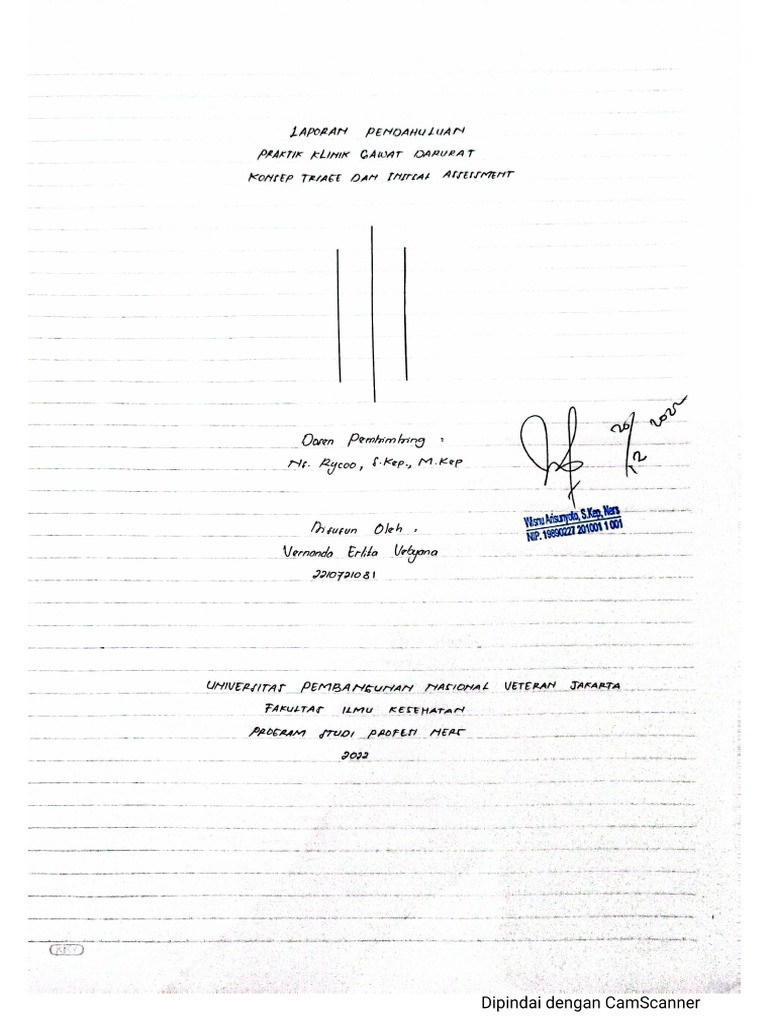 LAPORAN PENDAHULUAN
PRAKTIK KLINIK GAWAT DARURAT
KONSEP TRIAGE DAN INITIAL ASSESSMENT
Dosen Pembimbing :
Ns. Rycoo, S.Kep., M.Kep
20/12 2022
Wisnu Arisunyoto, S.Kep, Ners
NIP. 19890227 201001 1 001
Disusun Oleh :
Vernanda Erlita Vebyana
2210721081
UNIVERSITAS PEMBANGUNAN NASIONAL VETERAN JAKARTA
FAKULTAS ILMU KESEHATAN
PROGRAM STUDI PROFESI NERS
2022
Dipindai dengan CamScanner